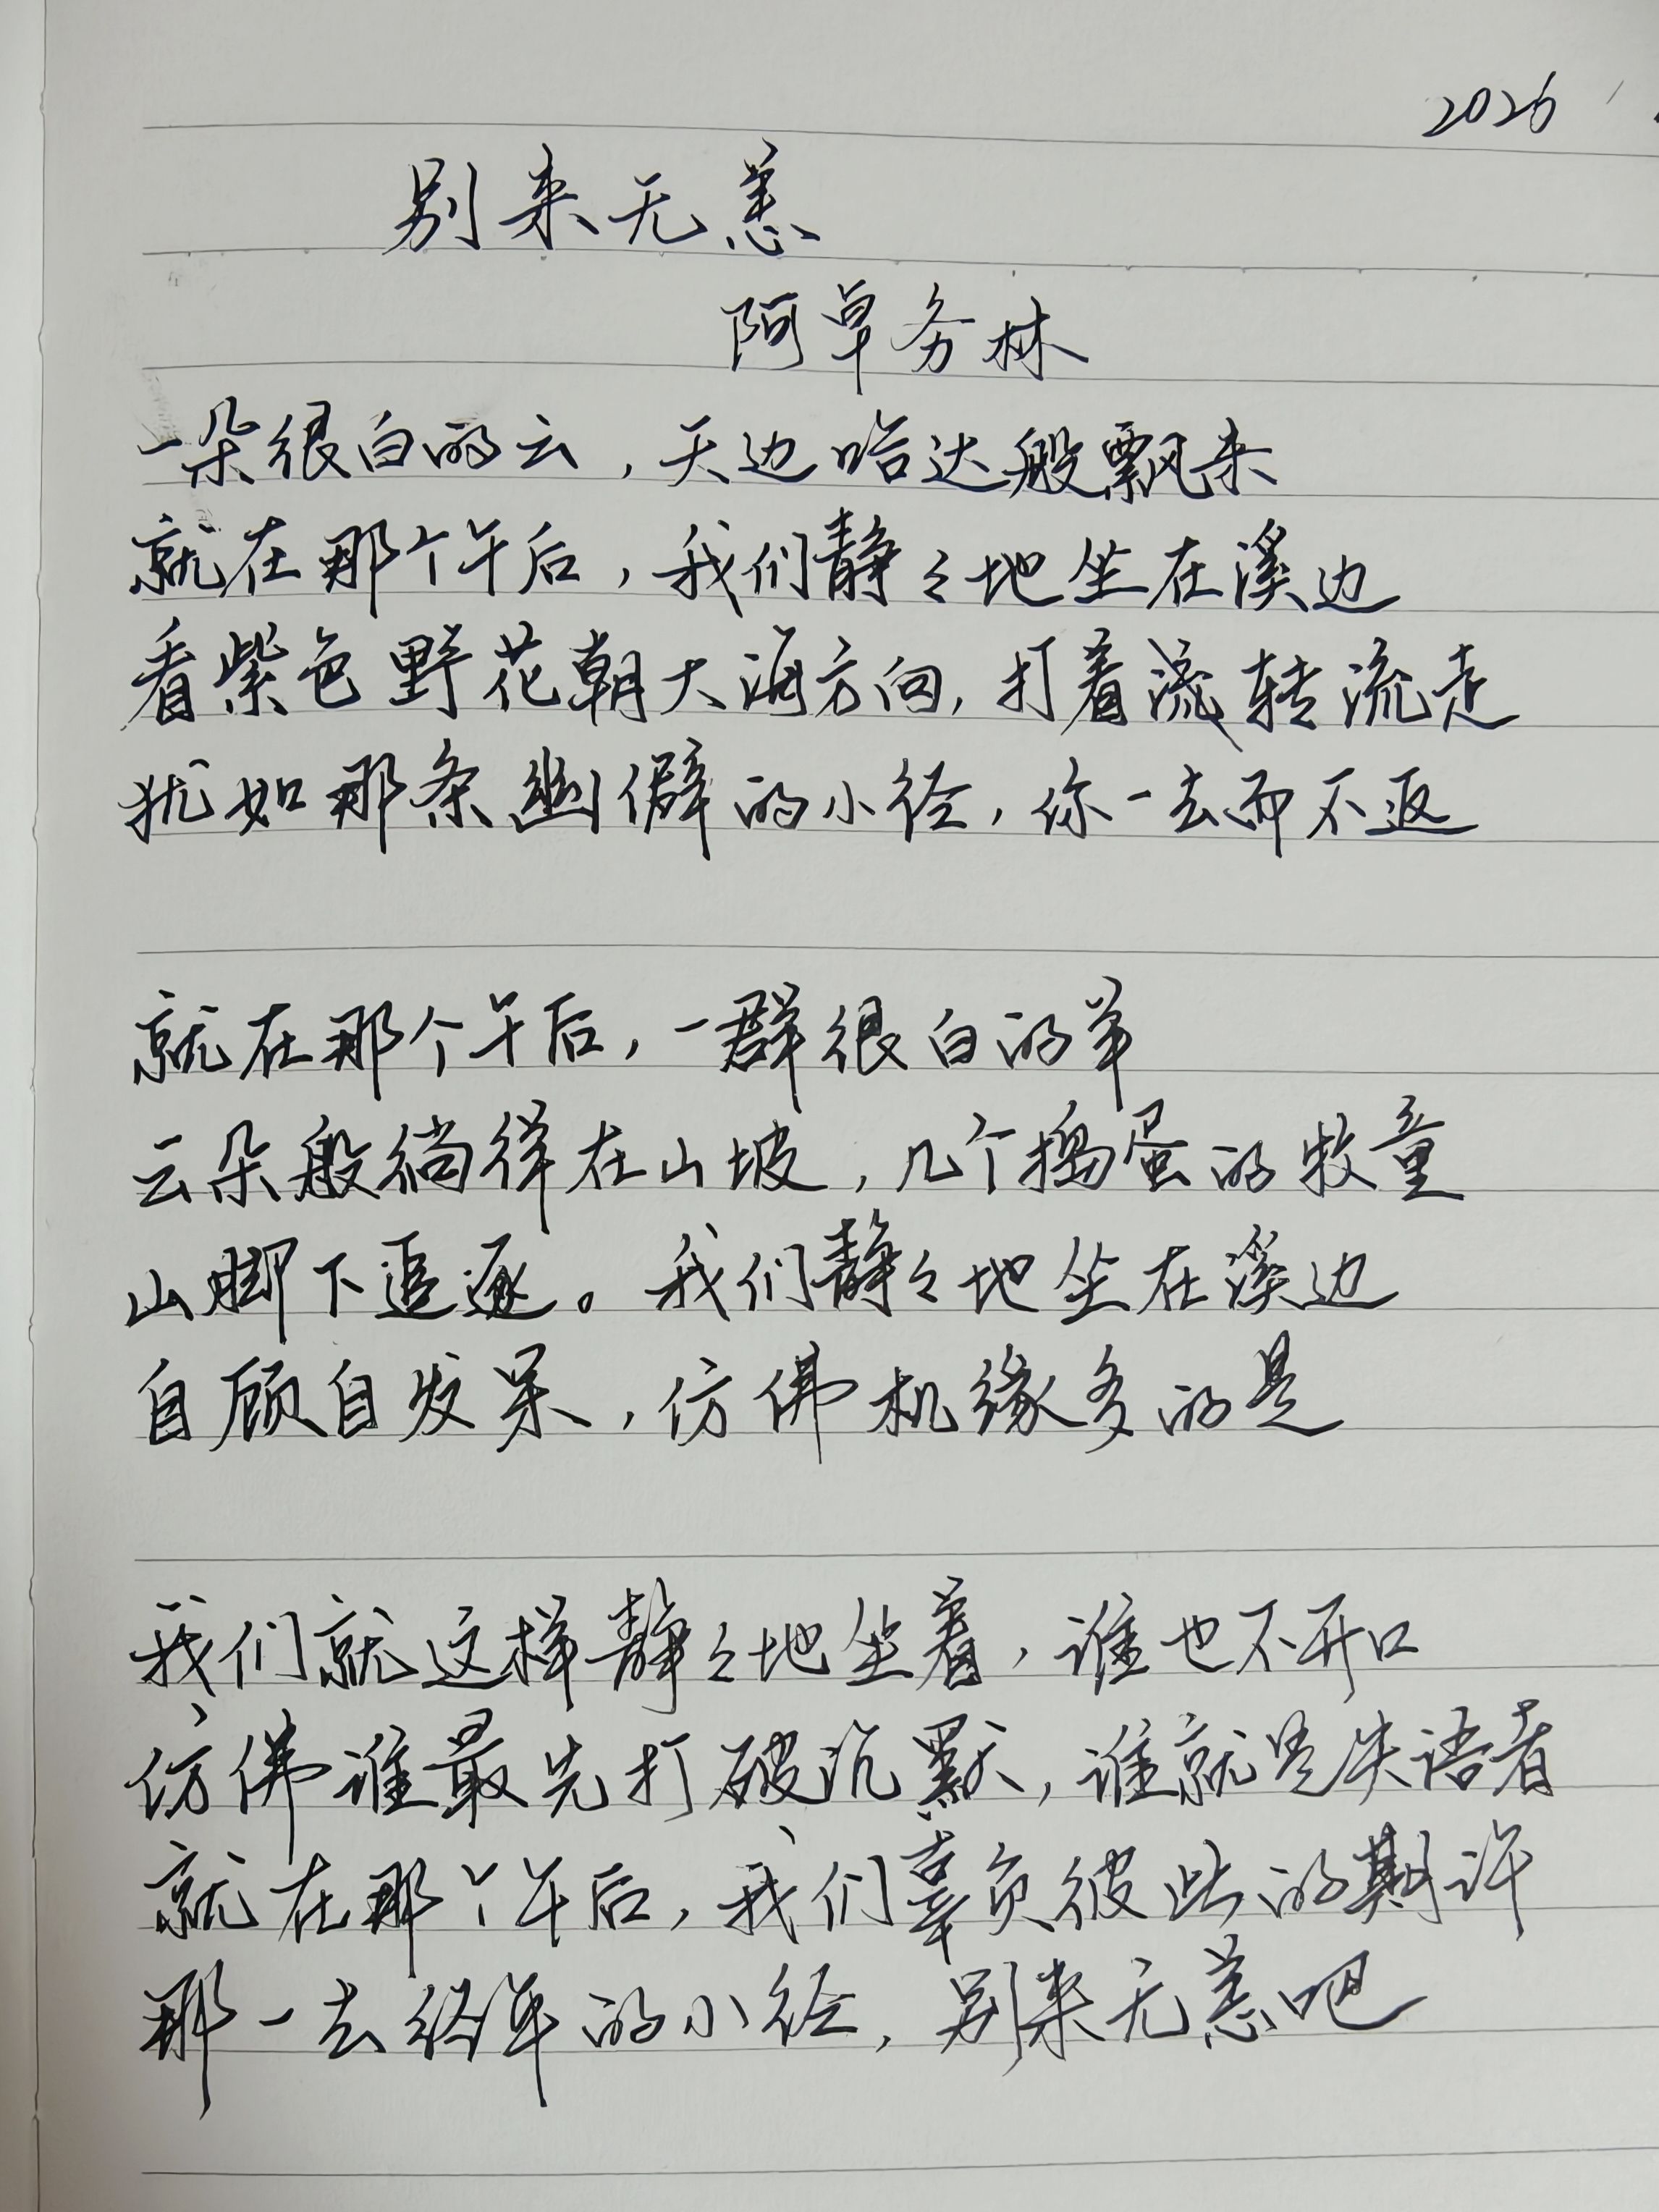 2026
别来无恙
阿卓务林
一朵很白的云，天边哈达般飘来
就在那个午后，我们静々地坐在溪边
看紫色野花朝大海方向，打着流转流走
犹如那条幽僻的小径，你一去而不返
就在那个午后，一群很白的羊
云朵般徜徉在山坡，几个捣蛋的牧童
山脚下追逐。我们静々地坐在溪边
自顾自发呆，仿佛机缘多的是
我们就这样静々地坐着，谁也不开口
仿佛谁最先打破沉默，谁就是失语者
就在那个午后，我们辜负彼此的期许
那一去经年的小径，别来无恙吧